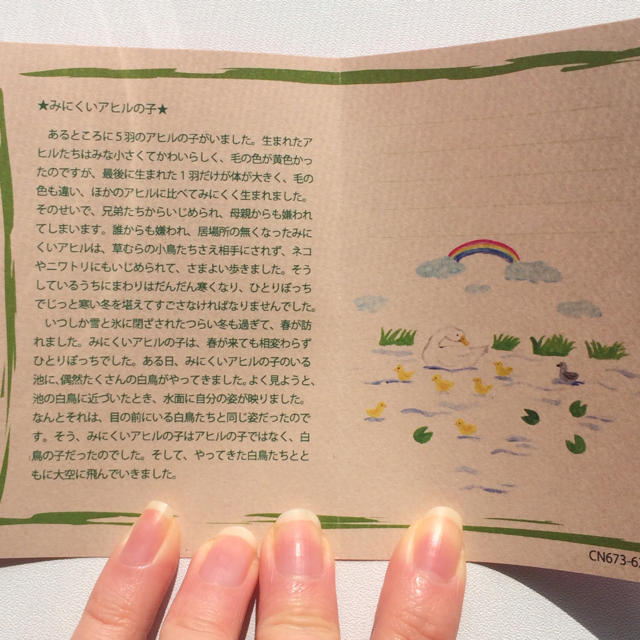 ★みにくいアヒルの子★
あるところに5羽のアヒルの子がいました。生まれたア
ヒルたちはみな小さくてかわいらしく、毛の色が黄色かっ
たのですが、最後に生まれた1羽だけが体が大きく、毛の
色も違い、ほかのアヒルに比べてみにくく生まれました。
そのせいで、兄弟たちからいじめられ、母親からも嫌われ
てしまいます。誰からも嫌われ、居場所の無くなったみに
くいアヒルは、草むらの小鳥たちさえ相手にされず、ネコ
やニワトリにもいじめられて、さまよい歩きました。そう
しているうちにまわりはだんだん寒くなり、ひとりぼっち
でじっと寒い冬を堪えてすごさなければなりませんでした。
いつしか雪と氷に閉ざされたつらい冬も過ぎて、春が訪
れました。みにくいアヒルの子は、春が来ても相変わらず
ひとりぼっちでした。ある日、みにくいアヒルの子のいる
池に、偶然たくさんの白鳥がやってきました。よく見ようと、
池の白鳥に近づいたとき、水面に自分の姿が映りました。
なんとそれは、目の前にいる白鳥たちと同じ姿だったので
す。そう、みにくいアヒルの子はアヒルの子ではなく、白
鳥の子だったのでした。そして、やってきた白鳥たちとと
もに大空に飛んでいきました。